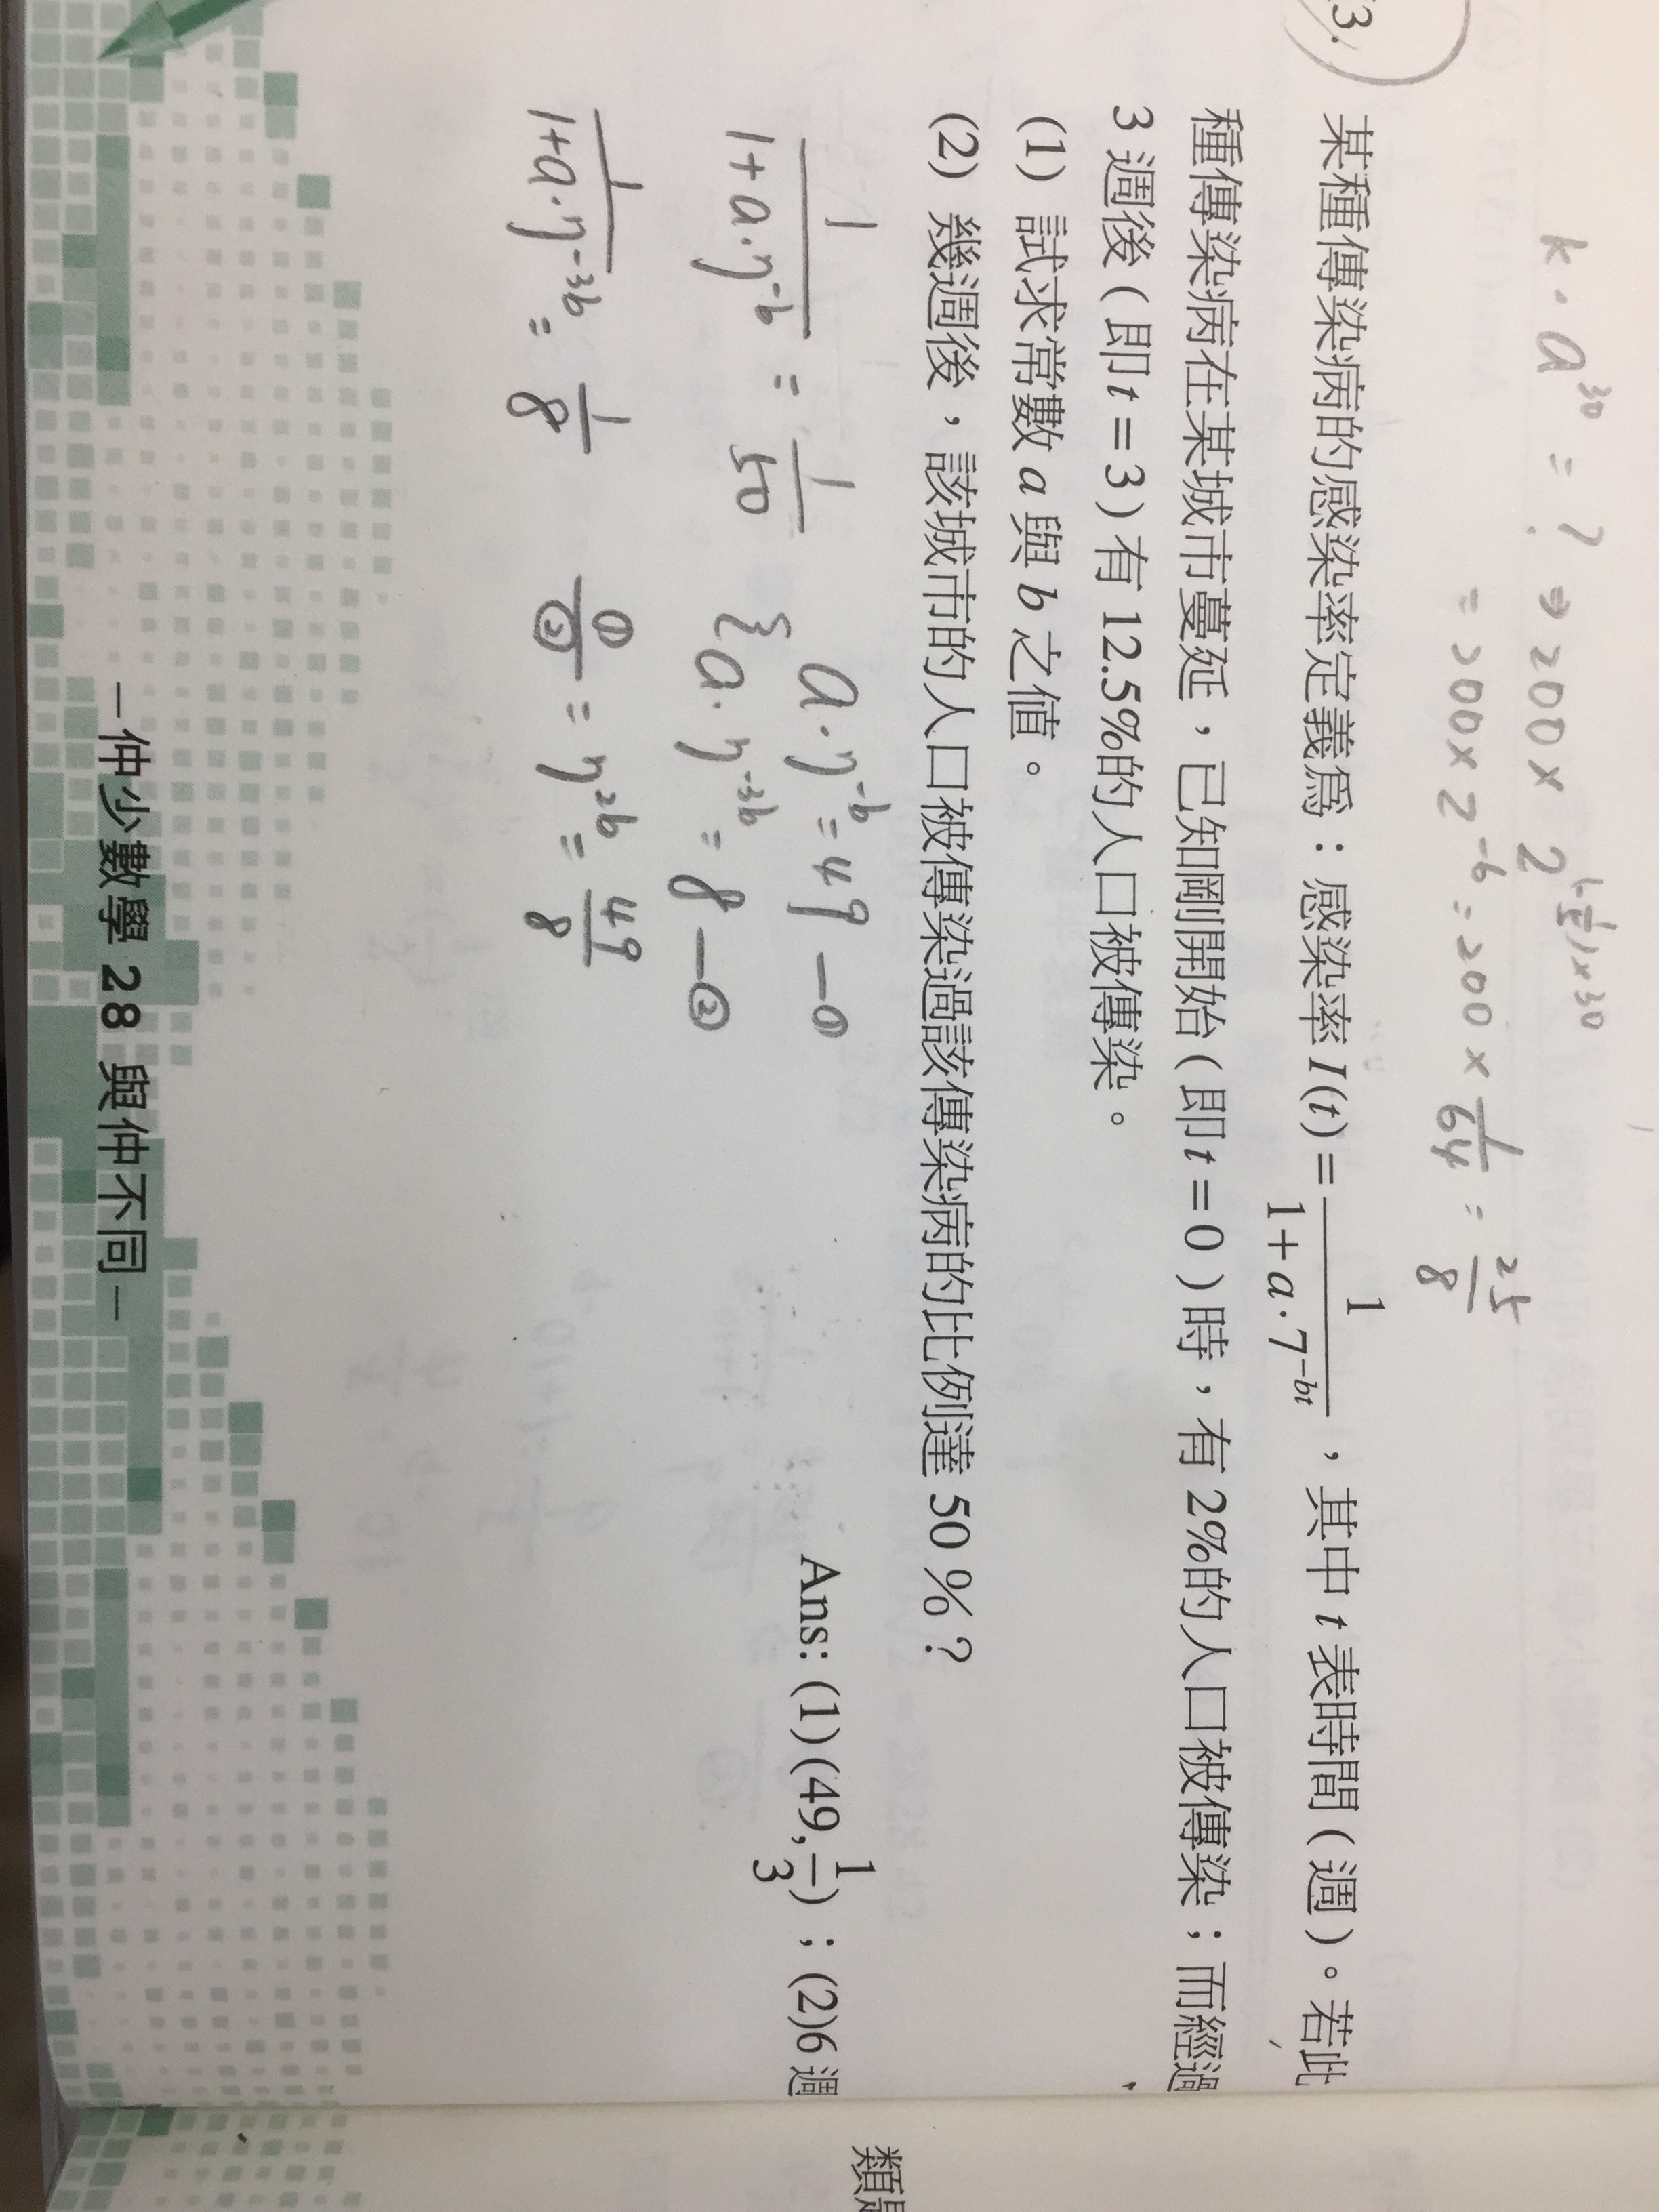 k·a³⁰ = ? ⇒ 200 × 2^(-1/5)×30
= 200 × 2⁻⁶ = 200 × 1/64 = 25/8
3.
某種傳染病的感染率定義為：感染率 I(t) = 1/(1+a·7^-bt)，其中 t 表時間(週)。若此
種傳染病在某城市蔓延，已知剛開始(即 t=0)時，有 2%的人口被傳染；而經過
3 週後(即 t=3)有 12.5%的人口被傳染。
(1) 試求常數 a 與 b 之值。
(2) 幾週後，該城市的人口被傳染過該傳染病的比例達 50 %？
Ans: (1)(49, 1/3)；(2)6 週
1/(1+a·7^-b) = 1/50
{ a·7^-b = 49 —①
a·7^-3b = 8 —②
1/(1+a·7^-3b) = 1/8
①/② = 7^2b = 49/8
–仲少數學 28 與仲不同–